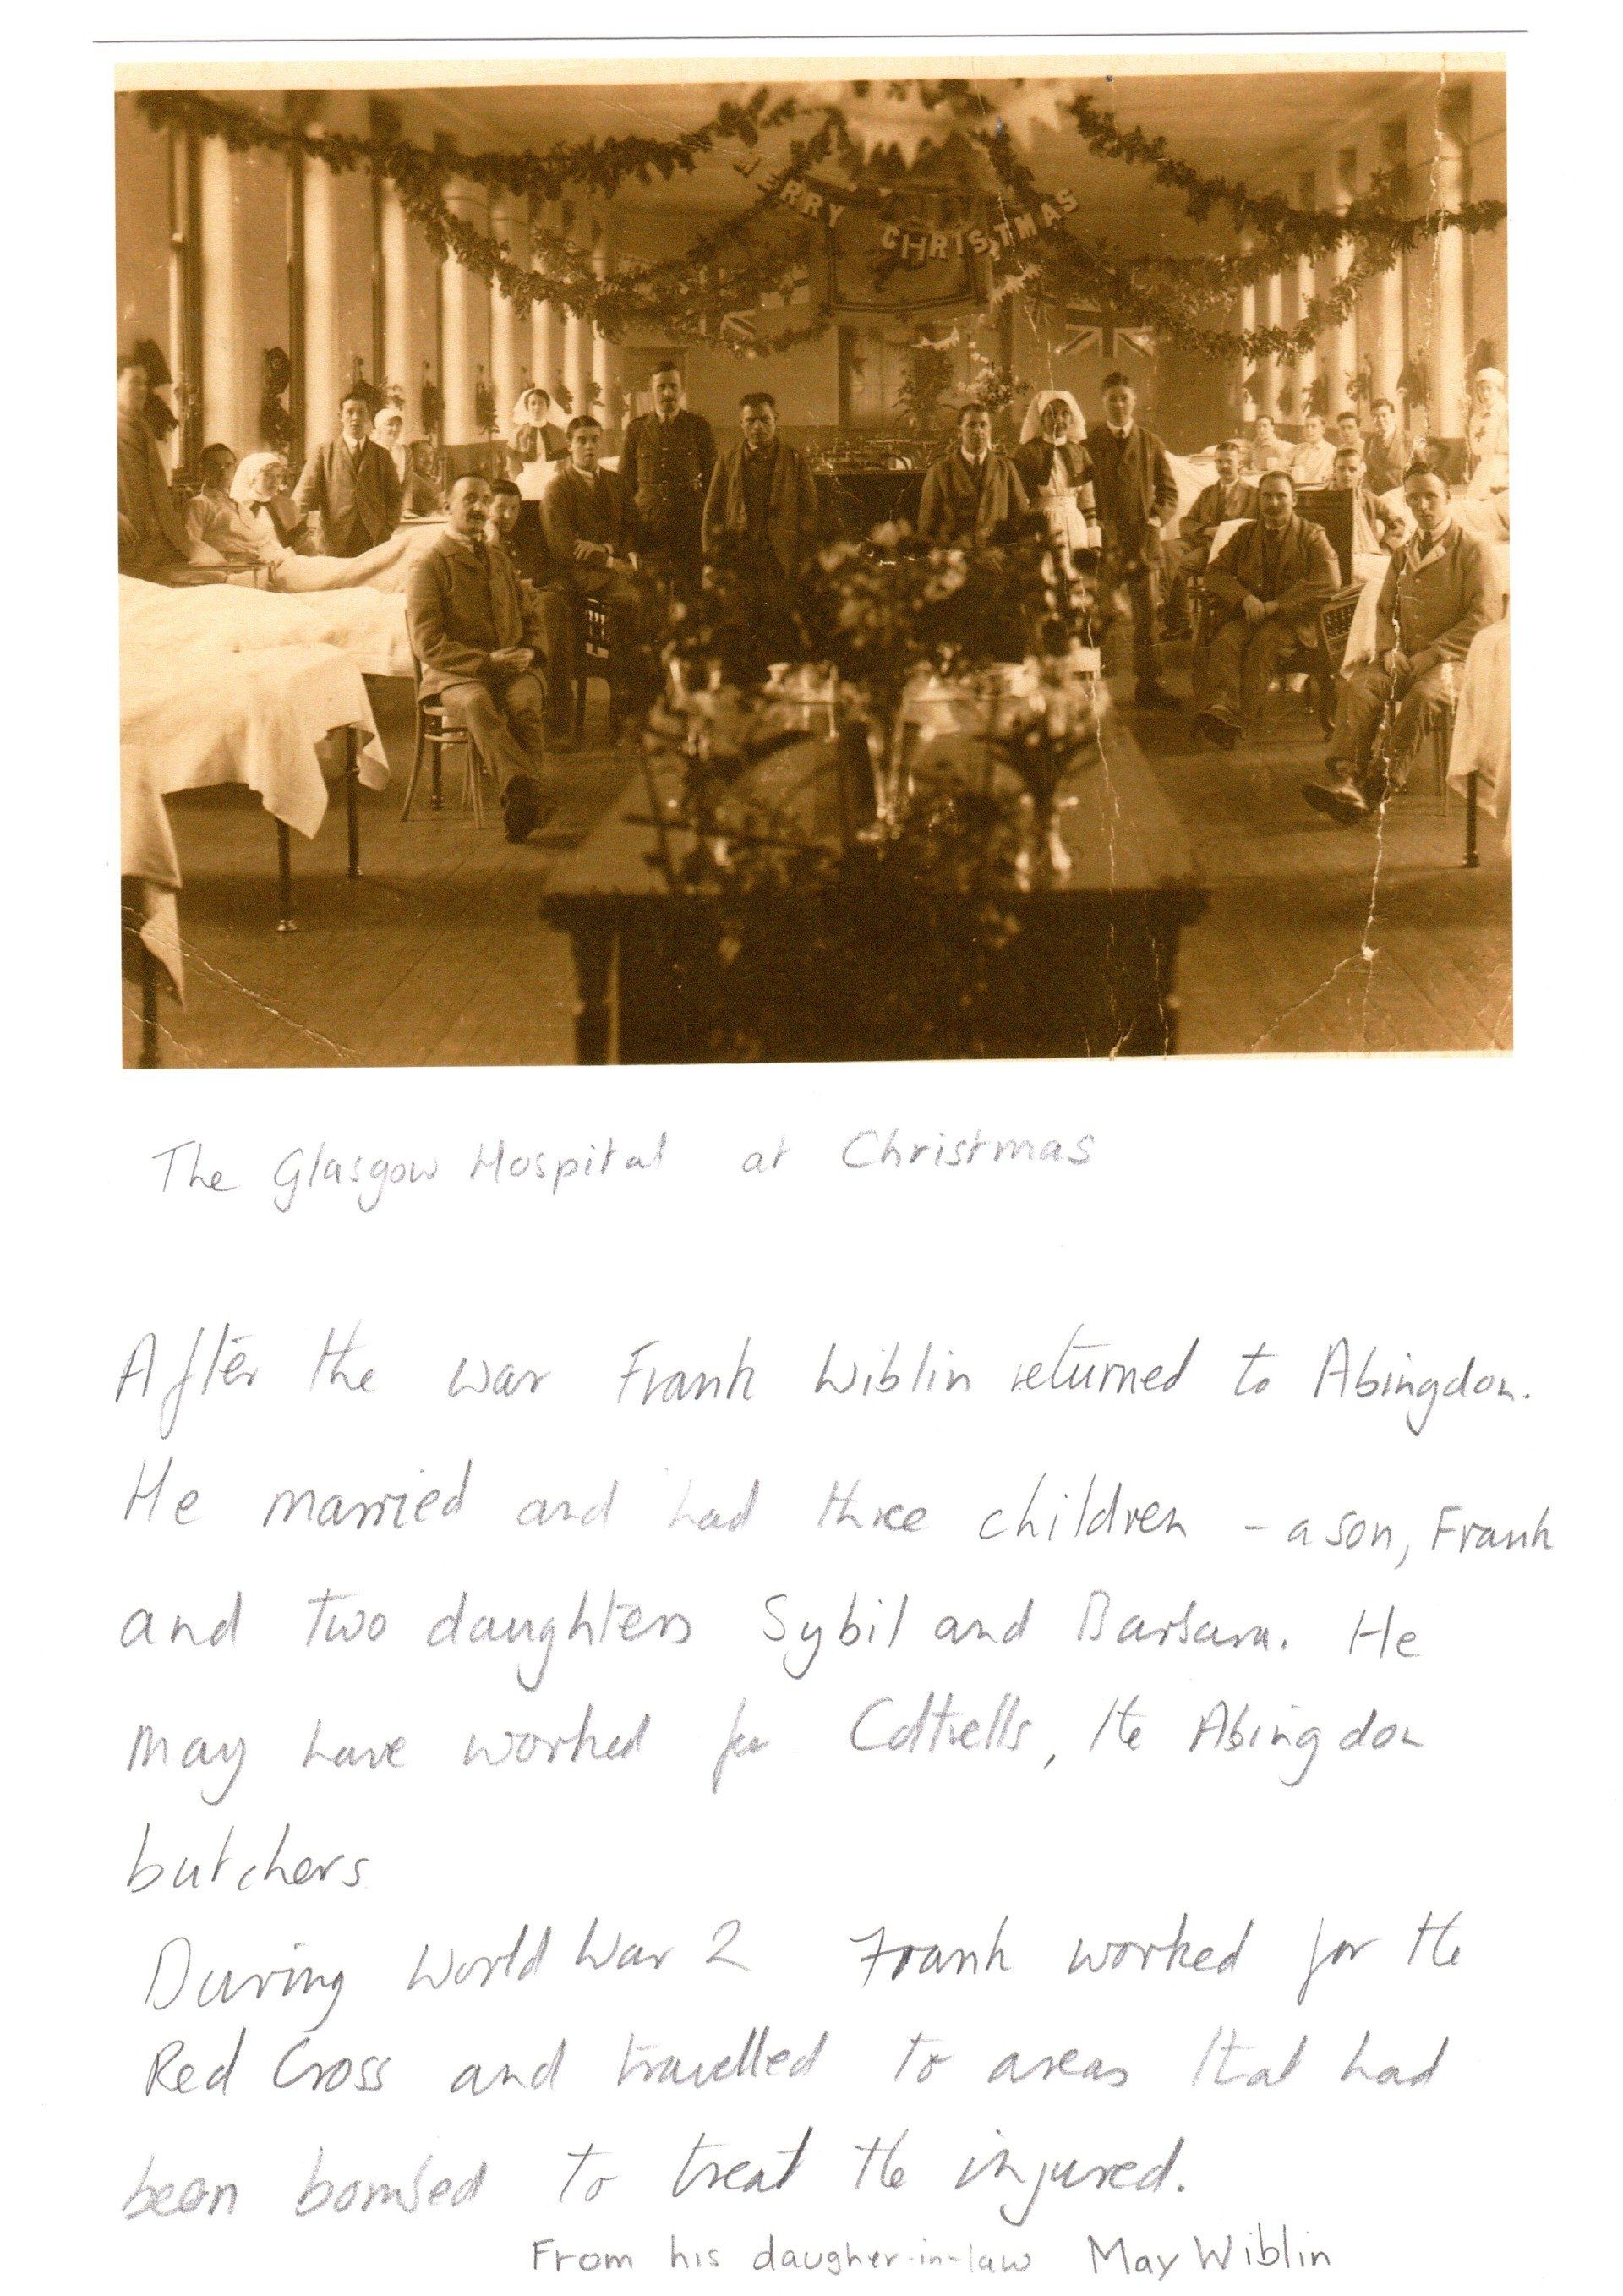 MERRY CHRISTMAS
The Glasgow Hospital at Christmas
After the war Frank Wiblin returned to Abingdon.
He married and had three children - a son, Frank
and two daughters Sybil and Barbara. He
may have worked for Cottrells, the Abingdon
butchers
During World War 2 Frank worked for the
Red Cross and travelled to areas that had
been bombed to treat the injured.
From his daugher-in-law May Wiblin